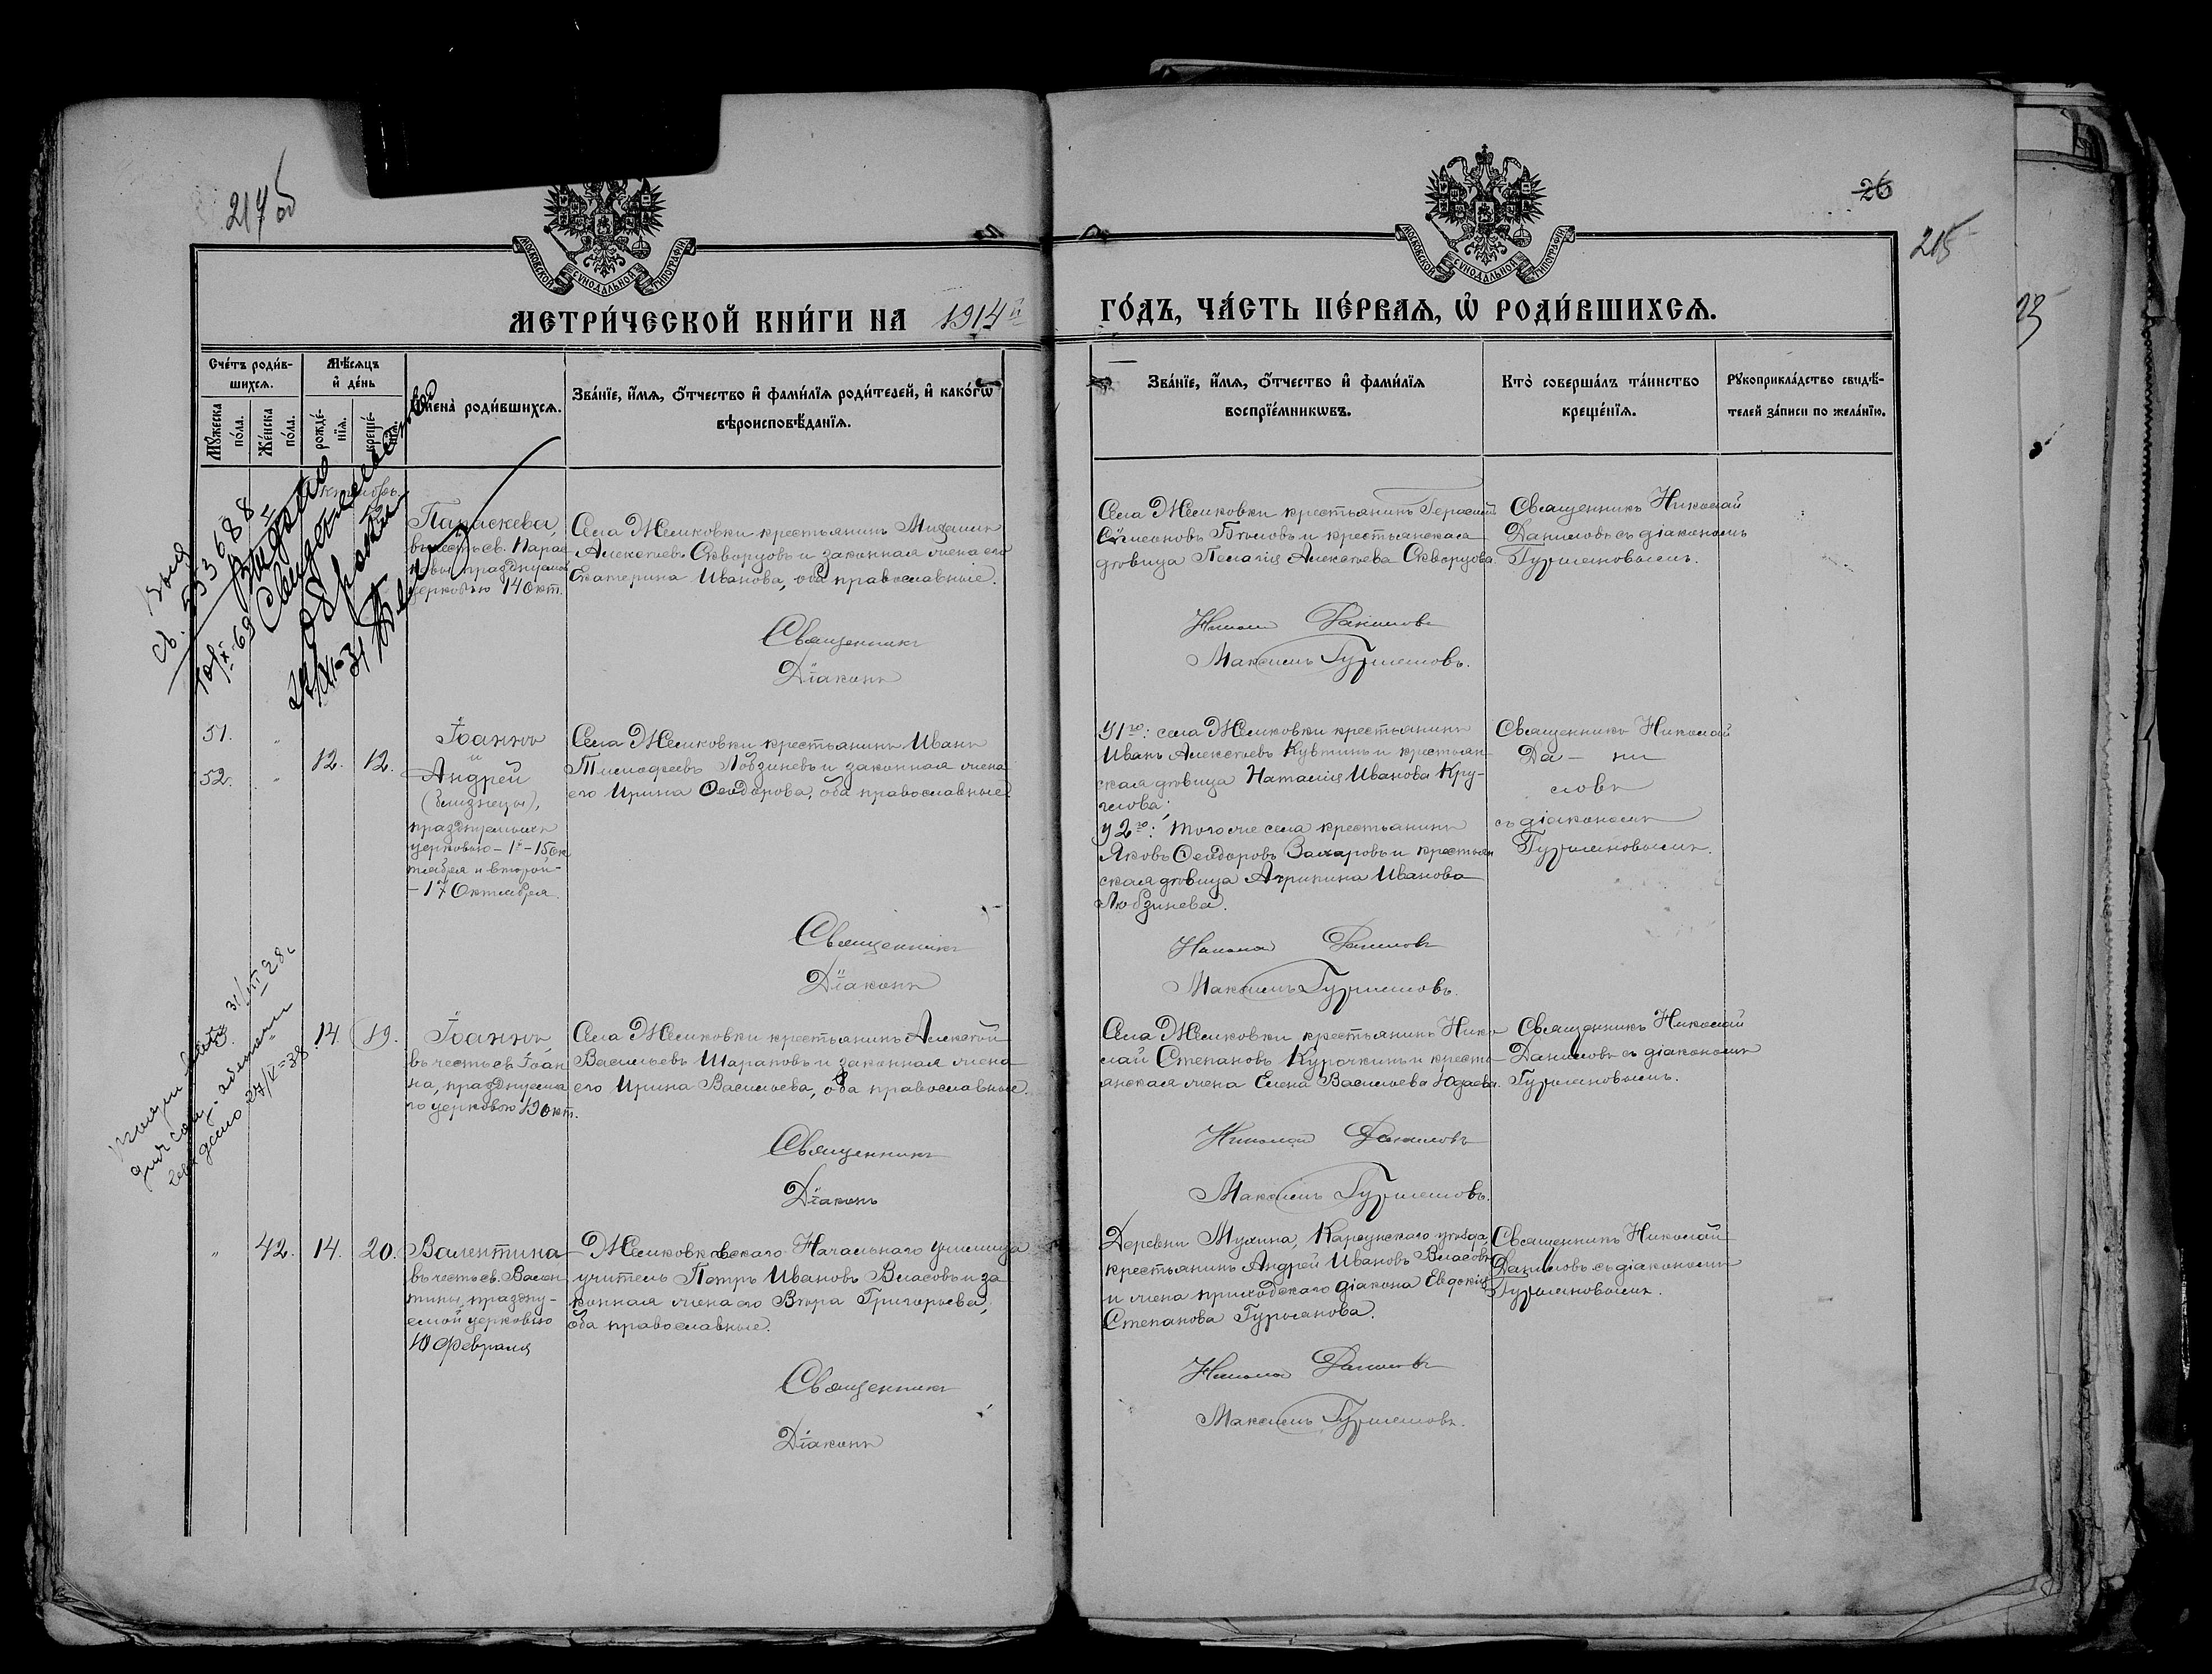 214 об
26
215
МОСКОВСКОЙ СѴНОДАЛЬНОЙ ТИПОГРАФІИ
МОСКОВСКОЙ СѴНОДАЛЬНОЙ ТИПОГРАФІИ
МЕТРИ́ЧЕСКОЙ КНИ́ГИ НА 1914й
ГО́ДЪ, ЧА́СТЬ ПЕ́РВАЯ, Ѡ҆ РОДИ́ВШИХСЯ.
Сче́тъ роди́в-
шихся.
Мѣ́сяцъ
и҆ де́нь
Мꙋ́жеска
по́ла.
Же́нска
по́ла.
рожде́-
нїя.
креще́-
Имена̀ роди́вшихся.
Зва́нїе, и҆́мя, о҆́тчество и҆ фами́лїя роди́телей, и҆ како́гѡ
вѣроисповѣ́данїя.
Зва́нїе, и҆́мя, о҆́тчество и҆ фами́лїя
воспрїе́мникѡвъ.
Кто̀ соверша́лъ та́инство
креще́нїя.
Рꙋкоприкла́дство свидѣ́-
телей за́писи по жела́нїю.
Параскева,
въ честь св. Парас
кевы празднуемой
церковью 14 окт.
Села Жемковки крестьянинъ Михаилъ
Алексѣевъ Скворцовъ и законная жена его
Екатерина Иванова, оба православные.
Священникъ
Дїаконъ
Села Жемковки крестьянинъ Герасимъ
Сѵмеоновъ и крестьянская
дѣвица Пелагія Алексѣева Скворцова.
Николай Даниловъ
Максимъ
Священникъ Николай
Даниловъ съ діакономъ
51.
52.
12.
12.
Іоаннъ
и
Андрей
(близнецы),
празднуемыхъ
церковью – 1й – 15 ок
тября и второй –
– 17 Октября.
Села Жемковки крестьянинъ Иванъ
Тимофеевъ Лобзиневъ и законная жена
его Ирина Ѳеодорова, оба православные.
Священникъ
Дїаконъ
У 1го: села Жемковки крестьянинъ
Иванъ Алексѣевъ и крестьян-
ская дѣвица Наталія Иванова Кру-
глова;
у 2го: того же села крестьянинъ
Яковъ Ѳеодоровъ Захаровъ и крестьян
ская дѣвица Агрипина Иванова
Лобзинева.
Николай Даниловъ
Максимъ
Священникъ Николай
Да – ни
ловъ
съ діакономъ
14.
19.
Іоаннъ
въ честь св. Іоан
на, празднуема
го церковью 19 окт.
Села Жемковки крестьянинъ Алексѣй
Васильевъ Шарановъ и законная жена
его Ирина Васильева, оба православные.
Священникъ
Дїаконъ
Села Жемковки крестьянинъ Нико
лай Степановъ Курочкинъ и кресть
янская жена Елена Васильева Юдаева.
Николай Даниловъ
Максимъ
Священникъ Николай
Даниловъ съ діакономъ
42.
14.
20.
Валентина
въ честь св. Вален
тины, праздну-
емой церковью
10 Февраля
Жемковскаго Начальнаго училища
учитель Петръ Ивановъ Власовъ и за
конная жена его Вѣра Григорьева,
оба православные.
Священникъ
Дїаконъ
Деревни Мухина, Карсунскаго уѣзда,
крестьянинъ Андрей Ивановъ Власовъ
и жена приходскаго діакона Евдокія
Степанова
Николай Даниловъ
Максимъ
Священникъ Николай
Даниловъ съ діакономъ